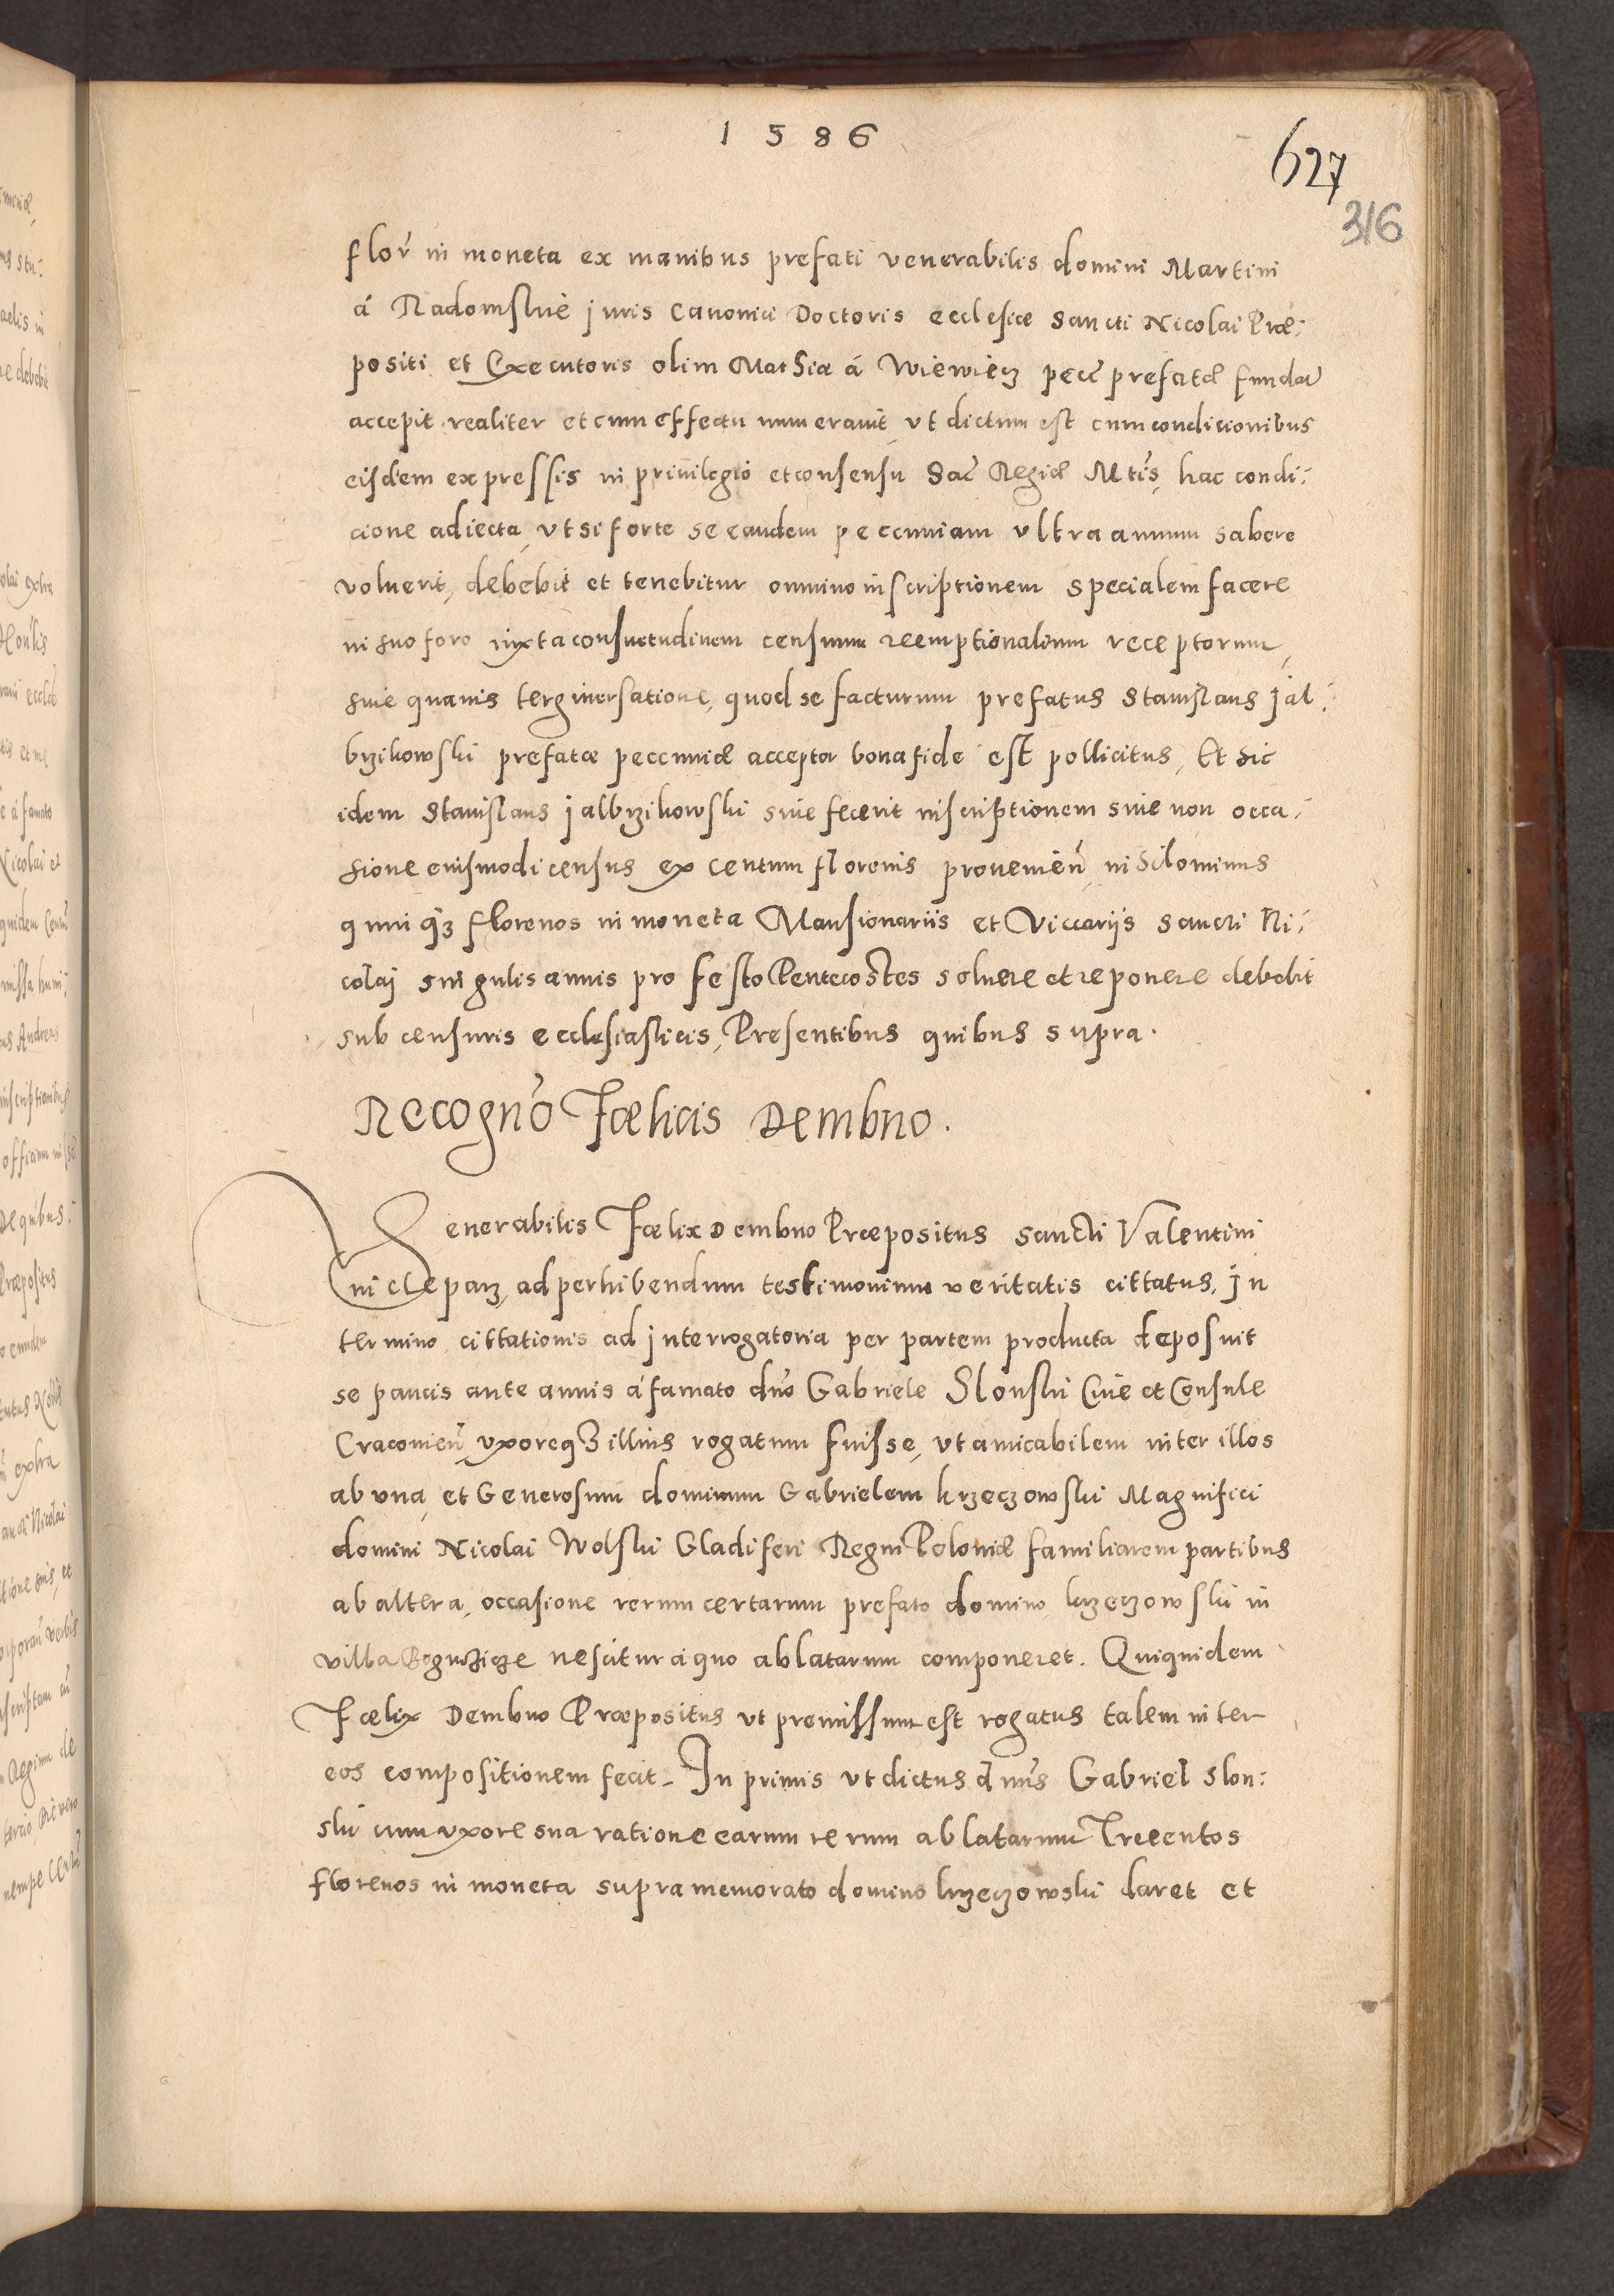 1 5 8 6
627
316
flor̃ in moneta ex manibus prefati venerabilis domini Martini
á Radomskie juris Canonici Doctoris ecclesiæ Sancti Nicolai Præ:
positi et Executoris olim Mathiæ á Wiewiecz pecc̃ prefatæ fundat̃
accepit realiter et cum effectu numerauit, vt dictum est cum condicionibus
eisdem expressis in priuilegio et consensu Sac̃ Regiæ Mtis̃, hac condi:
cione adiecta, vt si forte se eandem peccuniam vltra annum habere
voluerit, debebit et tenebitur omnino inscriptionem specialem facere
in suo foro iuxta consuetudinem censuum reemptionalium receptorum,
sine quauis terginersatione, quod se facturum prefatus Stanislaus jal:
brzikowski prefatæ peccuniæ acceptor bona fide est pollicitus, Et sic
idem Stanislaus jalbrzikowski siue fecerit inscriptionem siue non occa:
sione euismodi census ex centum florenis prouenien̄, nihilominus
quinq̃ florenos in moneta Mansionariis et Viccarijs Sancti Ni:
colaj singulis annis pro festo Pentecostes soluere et reponere debebit
sub censuris ecclesiasticis, Presentibus quibus supra.
Recogn̄o Fœlicis Dembno.
Venerabilis Fœlix Dembno Præpositus sancti Valentini
in Cleparz, ad perhibendum testimonium veritatis cittatus, jn
termino cittationis ad jnterrogatoria per partem producta deposuit
se paucis ante annis á famato dn̄o Gabriele Slonski Ciue et Consule
Cracouien̄, vxoreq̃ illius rogatum fuisse, vt amicabilem inter illos
ab vna, et Generosum dominum Gabrielem krzeczowski Magnifici
domini Nicolai Wolski Gladiferi Regni Poloniæ familiarem partibus
ab altera, occasione rerum certarum prefato domino krzeczowski in
villa nescitur a quo ablatarum componeret. Quiquidem
Fœlix Dembno Præpositus vt premissum est rogatus talem inter
eos compositionem fecit. In primis vt dictus dn̄us Gabriel Slon:
ski cum vxore sua ratione earum rerum ablatarum Trecentos
florenos in moneta supra memorato domino krzeczowski daret et